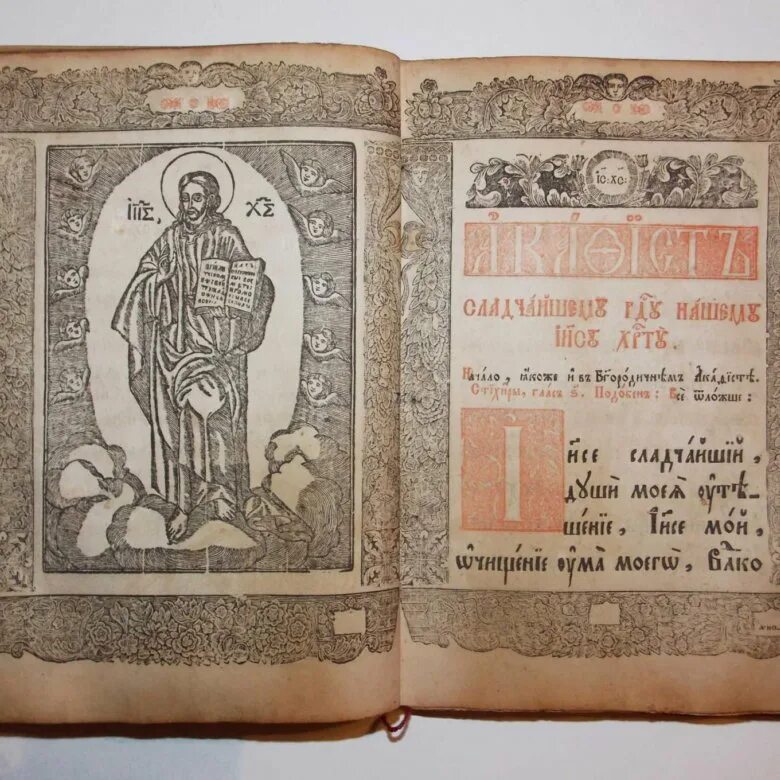 І҆И҃С. Х҃С
І҆С: ХС:
А҆КА́ѲЇСТЪ
СЛАДЧА́ЙШЕМꙊ ГДⷭ҇Ꙋ НА́ШЕМꙊ
І҆И҃СꙊ ХРⷭ҇ТꙊ̀.
Нача́ло, ꙗ҆́коже и҆ въ Бг҃оро́дичнѣмъ А҆ка́ѳїстѣ.
Стїхи̑ры, гла́съ ѕ҃. Подо́бенъ: Всѐ ѿло́жше:
І҆и҃се сладча́йшїй,
дꙋшѝ моеѧ̀ ᲂу҆тѣ-
ше́нїе, І҆и҃се мо́й,
ѡ҆чище́нїе ᲂу҆ма̀ моегѡ̀, Влⷣко